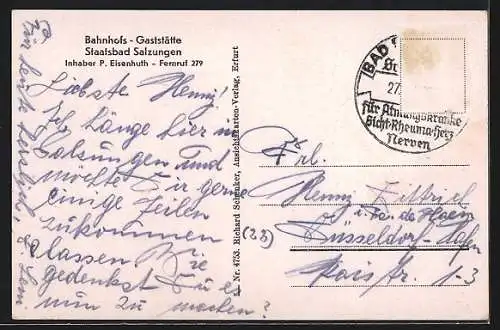 Bahnhofs - Gaststätte
Staatsbad Salzungen
Inhaber P. Eisenhuth - Fernruf 279
Liebste Henny!
Ich hänge hier in
Salsungen und
möchte Dir gerne
einige Zeilen
zukommen
lassen. Wie
gedenkst Du es
nun zu machen?
Nr. 4753. Richard Schenker, Ansichtkarten-Verlag, Erfurt
BAD
27.
für Atmungskranke
Gicht-Rheuma-Herz
Nerven
Frl.
Henny Dittrich
(22) Düsseldorf-Hafen
Kaistr. 1-3